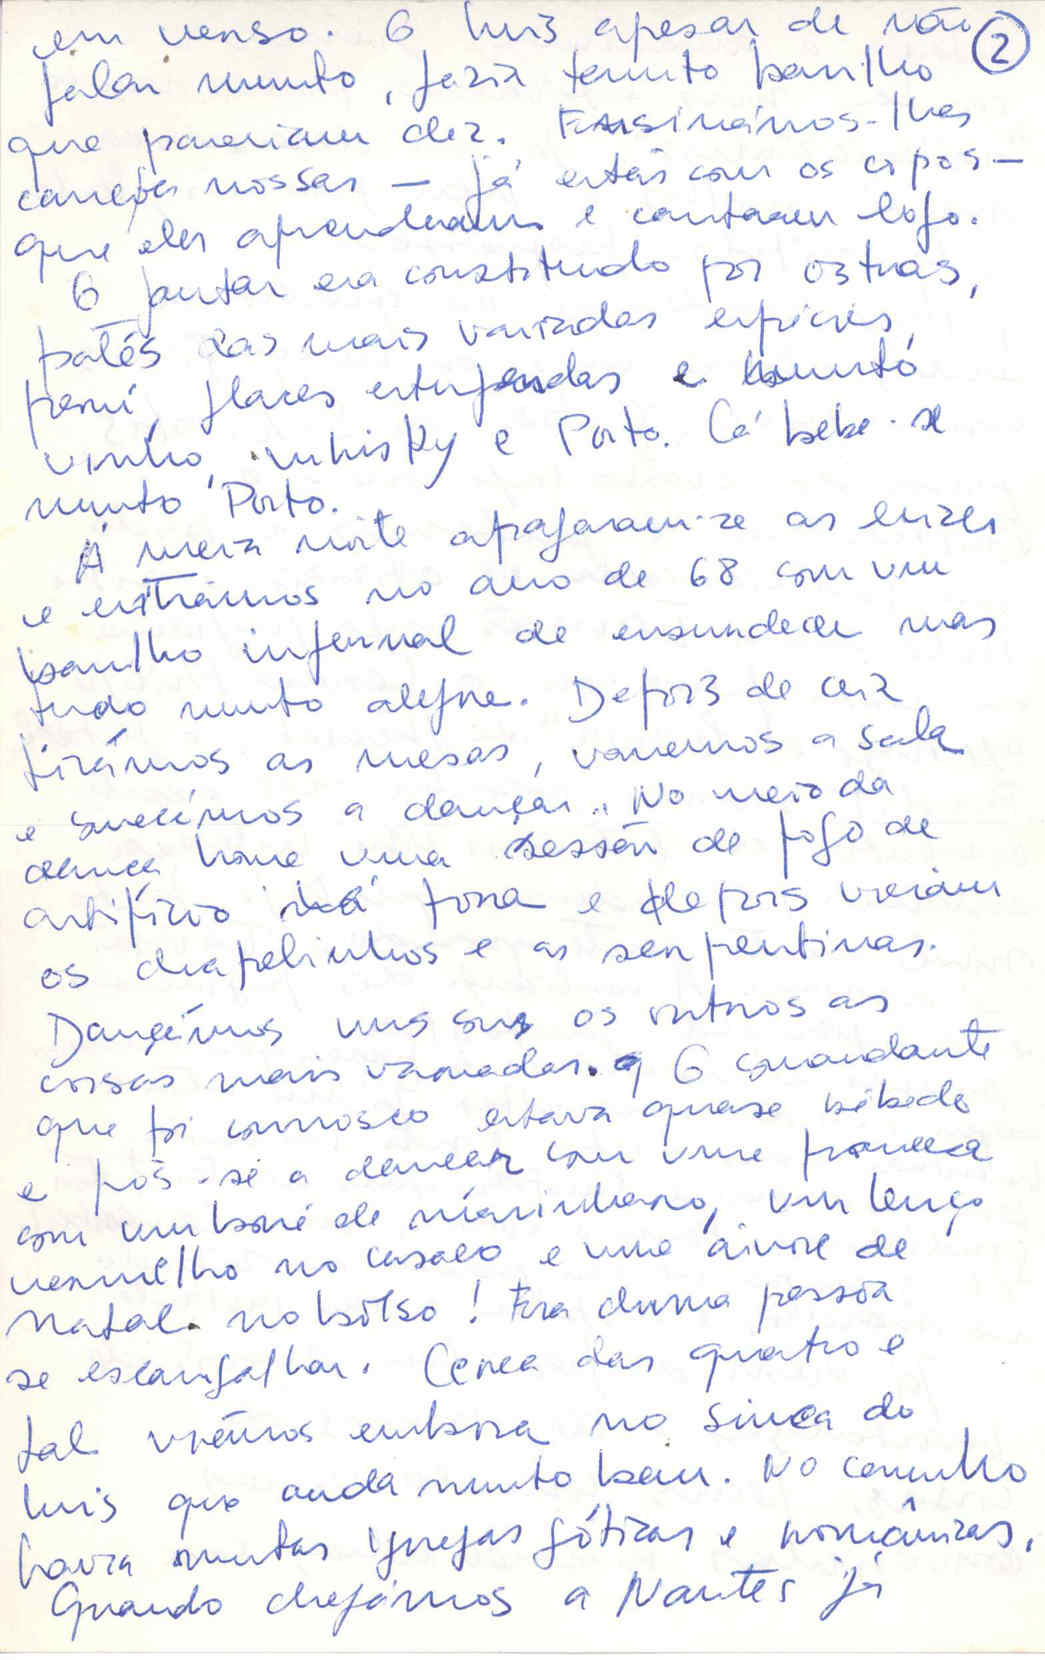 em verso. O Luis apesar de não
②
falar muito, fazia tanto barulho
que pareciam dez. Ensinámos-lhes
canções nossas — já estás com os copos —
que eles aprenderam e cantaram logo.
O jantar era constituido por ostras,
patés das mais variadas espécies,
perú, glaces estupendas e muito
vinho, whisky e Porto. Cá bebe-se
muito Porto.
Á meia noite apagaram-se as luzes
e entrámos no ano de 68 com um
barulho infernal de ensurdecer mas
tudo muito alegre. Depois de ceia
tirámos as mesas, varremos a sala
e começámos a dançar. No meio da
dança houve uma sessão de fogo de
artifício lá fora e depois vieram
os chapelinhos e as serpentinas.
Dançámos uns com os outros as
coisas mais variadas. O comandante
que foi connosco estava quase bêbedo
e pôs-se a dançar com uma francesa
com um boné de marinheiro, um lenço
vermelho no casaco e uma árvore de
Natal no bolso! Era duma pessoa
se escangalhar. Cerca das quatro e
tal viémos embora no Simca do
Luis que anda muito bem. No caminho
havia muitas igrejas góticas e românicas.
Quando chegámos a Nantes já